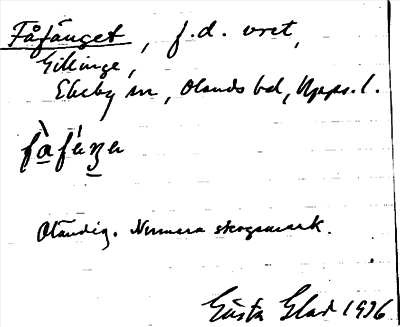 Fåfänget, f.d. vret,
Gillinge,
Ekeby sn, Olands hd, Upps. l.
Oländig. Numera skogsmark.
Gösta Glad 1936